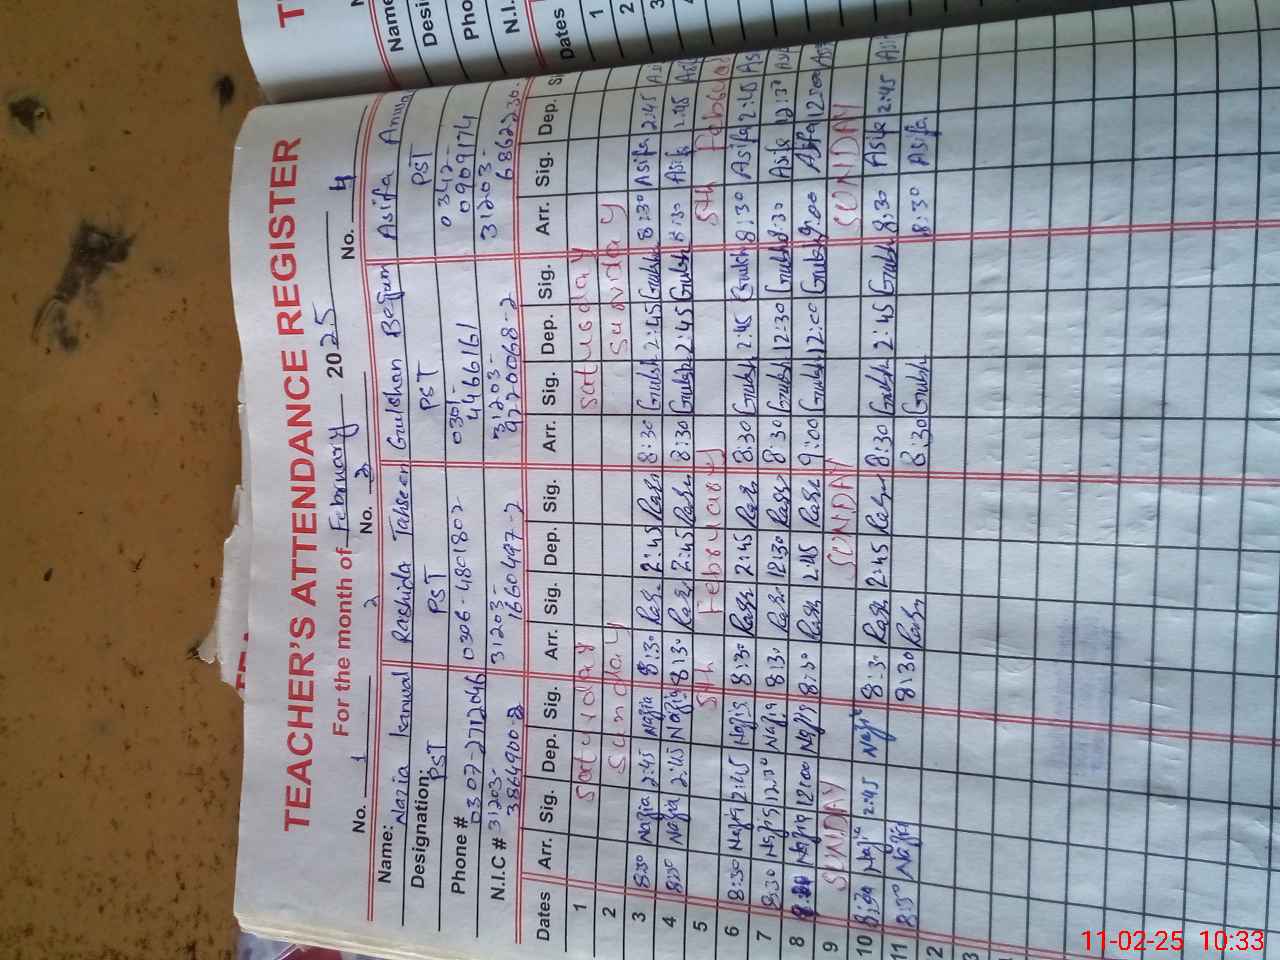 TEACHER'S ATTENDANCE REGISTER
For the month of February 2025
No. 1 2 No. 3 No. 4
Name: Nazia Kanwal Rashida Tahseen Gulshan Begum Asifa
Designation: PST PST PST PST
Phone # 0307-2712046 0306-4801802 0301- 4466161 0342- 0909174
N.I.C # 31203- 31203- 31203- 31203-
3864900-2 1660497-2 9220068-2 6862230
Dates Arr. Sig. Dep. Sig. Arr. Sig. Dep. Sig. Arr. Sig. Dep. Sig. Arr. Sig. Dep.
1 Saturday Saturday
2 Sunday Sunday
3 8:30 Nazia 2:45 Nazia 8:30 Rash 2:45 Rash 8:30 Gulsh 2:45 Gulsh 8:30 Asifa 2:45
4 8:30 Nazia 2:45 Nazia 8:30 Rash 2:45 Rash 8:30 Gulsh 2:45 Gulsh 8:30 Asifa 2:45
5 5th February 5th February
6 8:30 Nazia 2:45 Nazia 8:30 Rash 2:45 Rash 8:30 Gulsh 2:45 Gulsh 8:30 Asifa 2:45
7 8:30 Nazia 12:30 Nazia 8:30 Rash 12:30 Rash 8:30 Gulsh 12:30 Gulsh 8:30 Asifa 12:30
8 Nazia 12:00 Nazia 8:30 Rash 2:45 Rash 9:00 Gulsh 12:00 Gulsh 9:00 Asifa 12:00
9 SUNDAY SUNDAY SUNDAY
10 8:30 Nazia 2:45 Nazia 8:30 Rash 2:45 Rash 8:30 Gulsh 2:45 Gulsh 8:30 Asifa 2:45
11 8:30 Nazia 8:30 Rash 8:30 Gulsh 8:30 Asifa
2
3
Name
Desi
Pho
N.I.
Dates
1
2
3
11-02-25 10:33